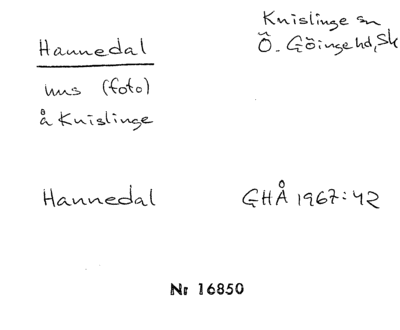 Hannedal
Knislinge sn
Ö. Göingehd, Sk
hus (foto)
å Knislinge
Hannedal
GHÅ 1967:42
Nr 16850